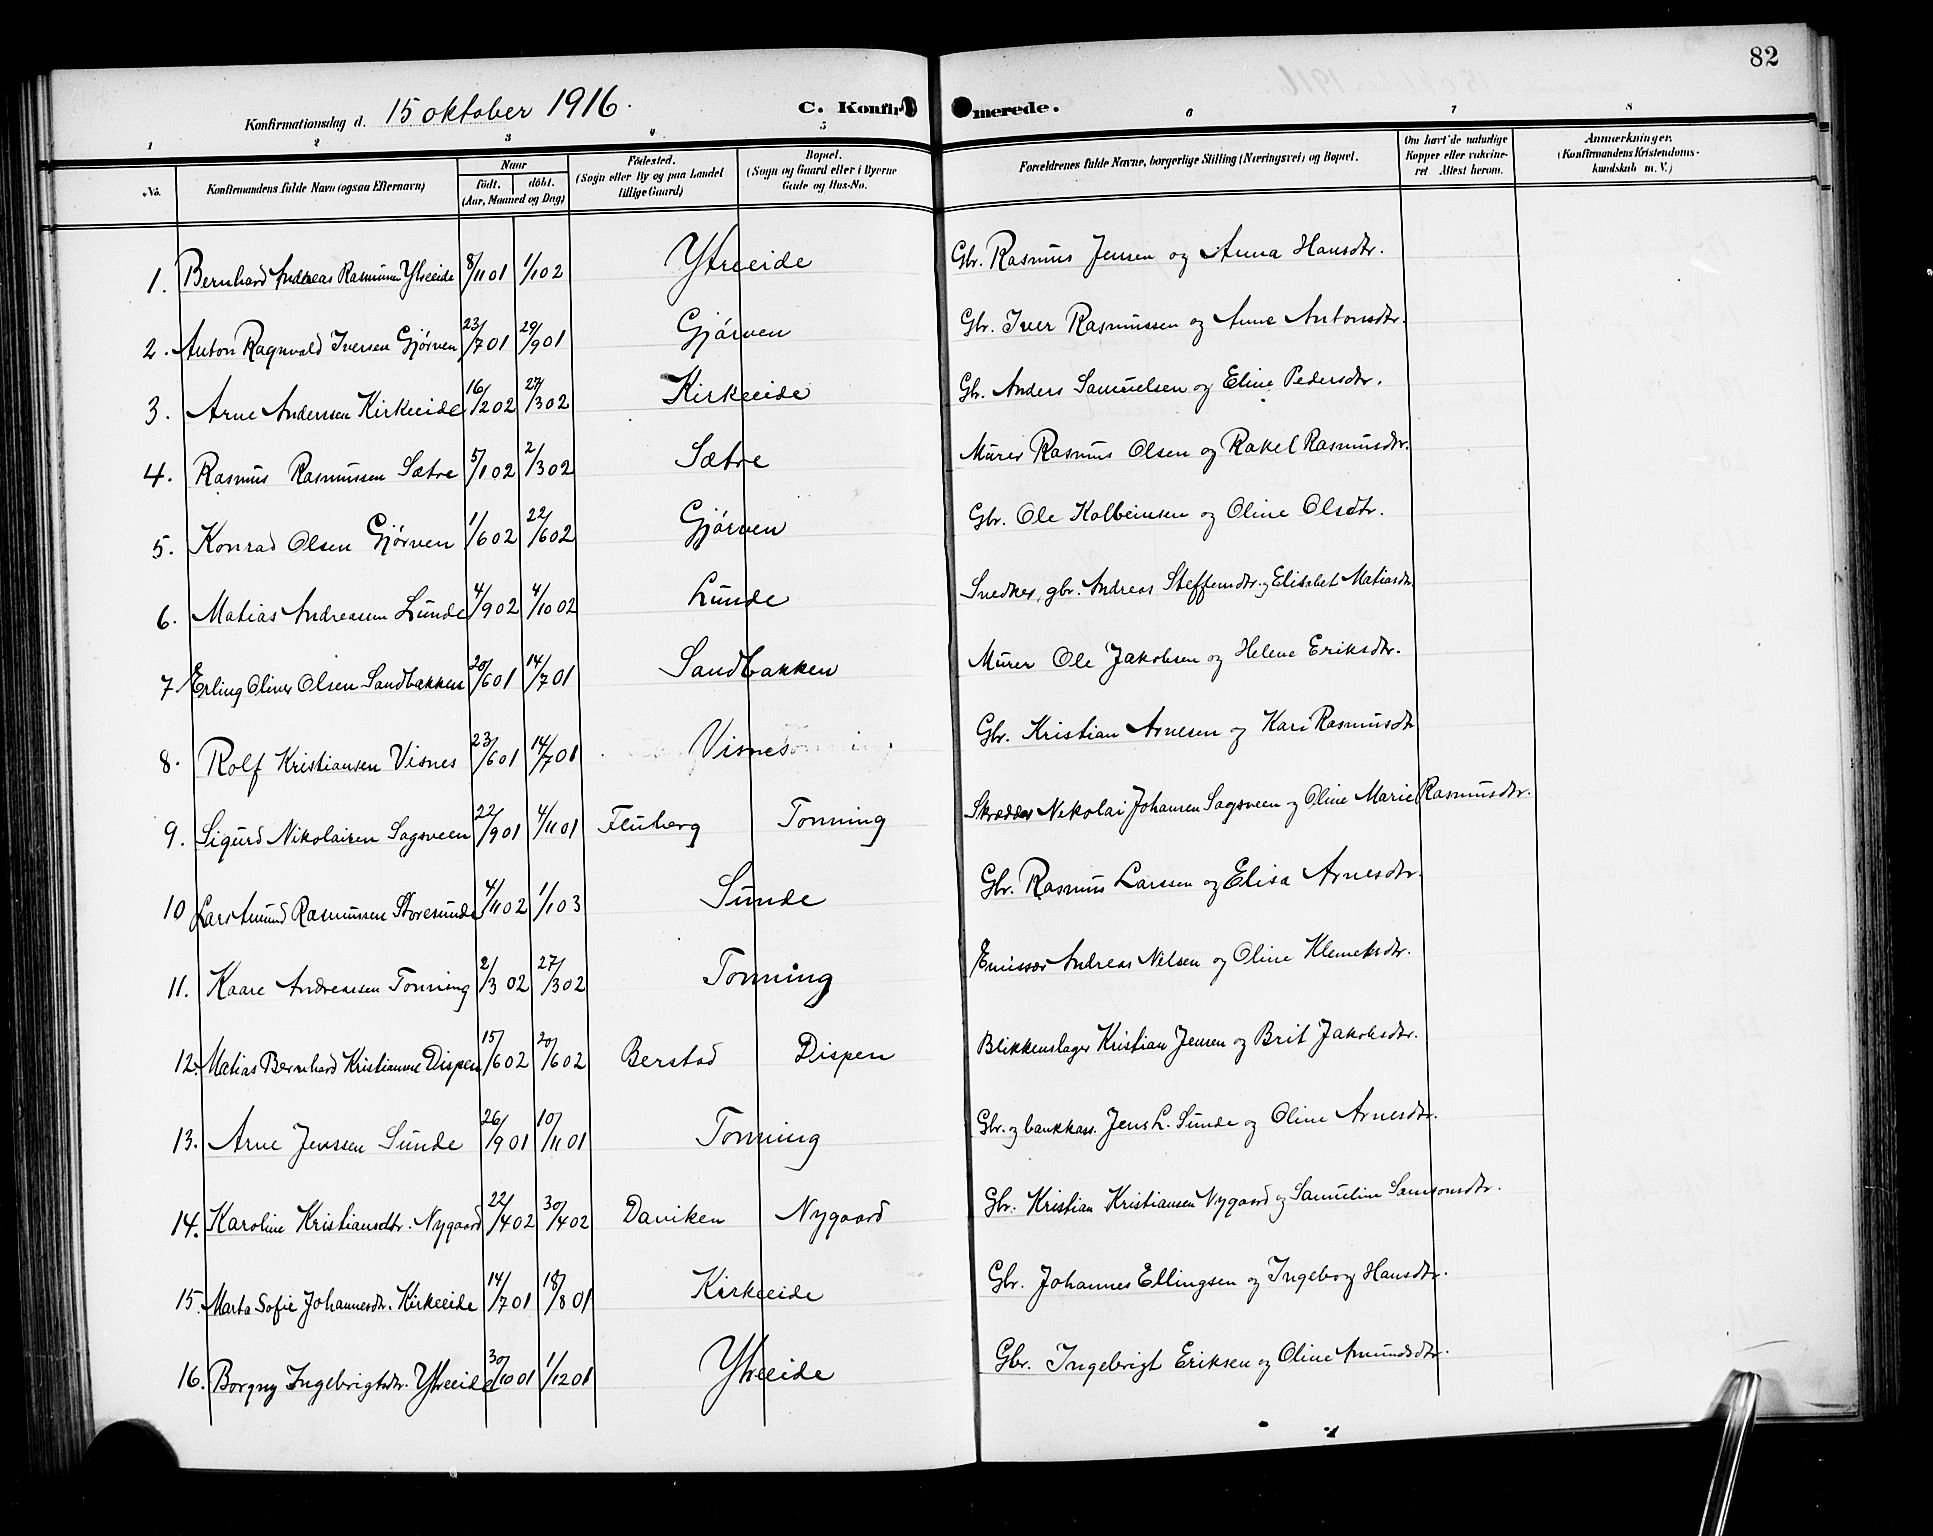 82
Konfirmationsdag d. 15 oktober 1916. C. Konfirmerede.
1 2 3 4 5 6 7 8
No. Konfirmandens fulde Navn (ogsaa Efternavn) Naar født. døbt. (Aar, Maaned og Dag) Fødested. (Sogn eller By og paa Landet tillige Gaard) Bopæl. (Sogn og Gaard eller i Byerne Gade og Hus-No. Forældrenes fulde Navne, borgerlige Stilling (Næringsvei) og Bopæl. Om havt de naturlige Kopper eller vakcineret Attest herom. Anmærkninger. (Konfirmandens Kristendomskundskab m. V.)
1. Bernhard Andreas Rasmussen Ytreeide 8/11 01 1/1 02 Ytreeide Gbr. Rasmus Jensen og Anna Hansdtr.
2. Anton Ragnvald Iversen Gjørven 23/7 01 29/9 01 Gjørven Gbr. Iver Rasmussen og Anne Antonsdtr.
3. Arne Anderssen Kirkeeide 16/2 02 27/3 02 Kirkeeide Gb. Anders Samuelsen og Eline Pedersdtr.
4. Rasmus Rasmussen Sætre 5/1 02 2/3 02 Sætre Murer Rasmus Olsen og Rakel Rasmusdtr.
5. Konrad Olsen Gjørven 1/6 02 22/6 02 Gjørven Gbr. Ole Kolbeinsen og Oline Olsdtr.
6. Matias Andreassen Lunde 4/9 02 4/10 02 Lunde Snedker, gbr. Andreas Steffensdtr. og Elisabet Matiasdtr
7. Erling Oliver Olsen Sandbakken 20/6 01 14/7 01 Sandbakken Murer Ole Jakobsen og Helene Eriksdtr.
8. Rolf Kristiansen Visnes 23/6 01 14/7 01 Visnes Gbr. Kristian Arnesen og Kari Rasmusdtr
9. Sigurd Nikolaisen Sagsveen 22/9 01 4/11 01 Fluberg Tonning Skrædder Nikolai Johansen Sagsveen og Oline Marie Rasmusdtr.
10 Lars Amund Rasmussen Storesunde 4/11 02 1/1 03 Sunde Gbr. Rasmus Larssen og Elisa Arnesdtr.
11. Kaare Andreassen Tonning 2/3 02 27/3 02 Tonning Emissær Andreas Nilsen og Oline Klemetsdtr.
12. Matias Bernhard Kristiansen Dispen 15/6 02 20/6 02 Berstad Dispen Blikkenslager Kristian Jensen og Brit Jakobsdtr.
13. Arne Jenssen Sunde 26/9 01 10/11 01 Tonning Gbr. og bankkass. Jens L. Sunde og Oline Arnesdtr.
14. Karoline Kristiansdtr. Nygaard 22/4 02 30/4 02 Daviken Nygaard Gbr. Kristian Kristiansen Nygaard og Samuline Samsonsdtr.
15. Marta Sofie Johannesdtr. Kirkeeide 14/7 01 18/8 01 Kirkeeide Gbr. Johannes Ellingsen og Ingeborg Hansdtr.
16. Borgny Ingebrigtsdtr. Ytreeide 30/10 01 1/12 01 Ytreeide Gbr. Ingebrigt Eriksen og Oline Amundsdtr.